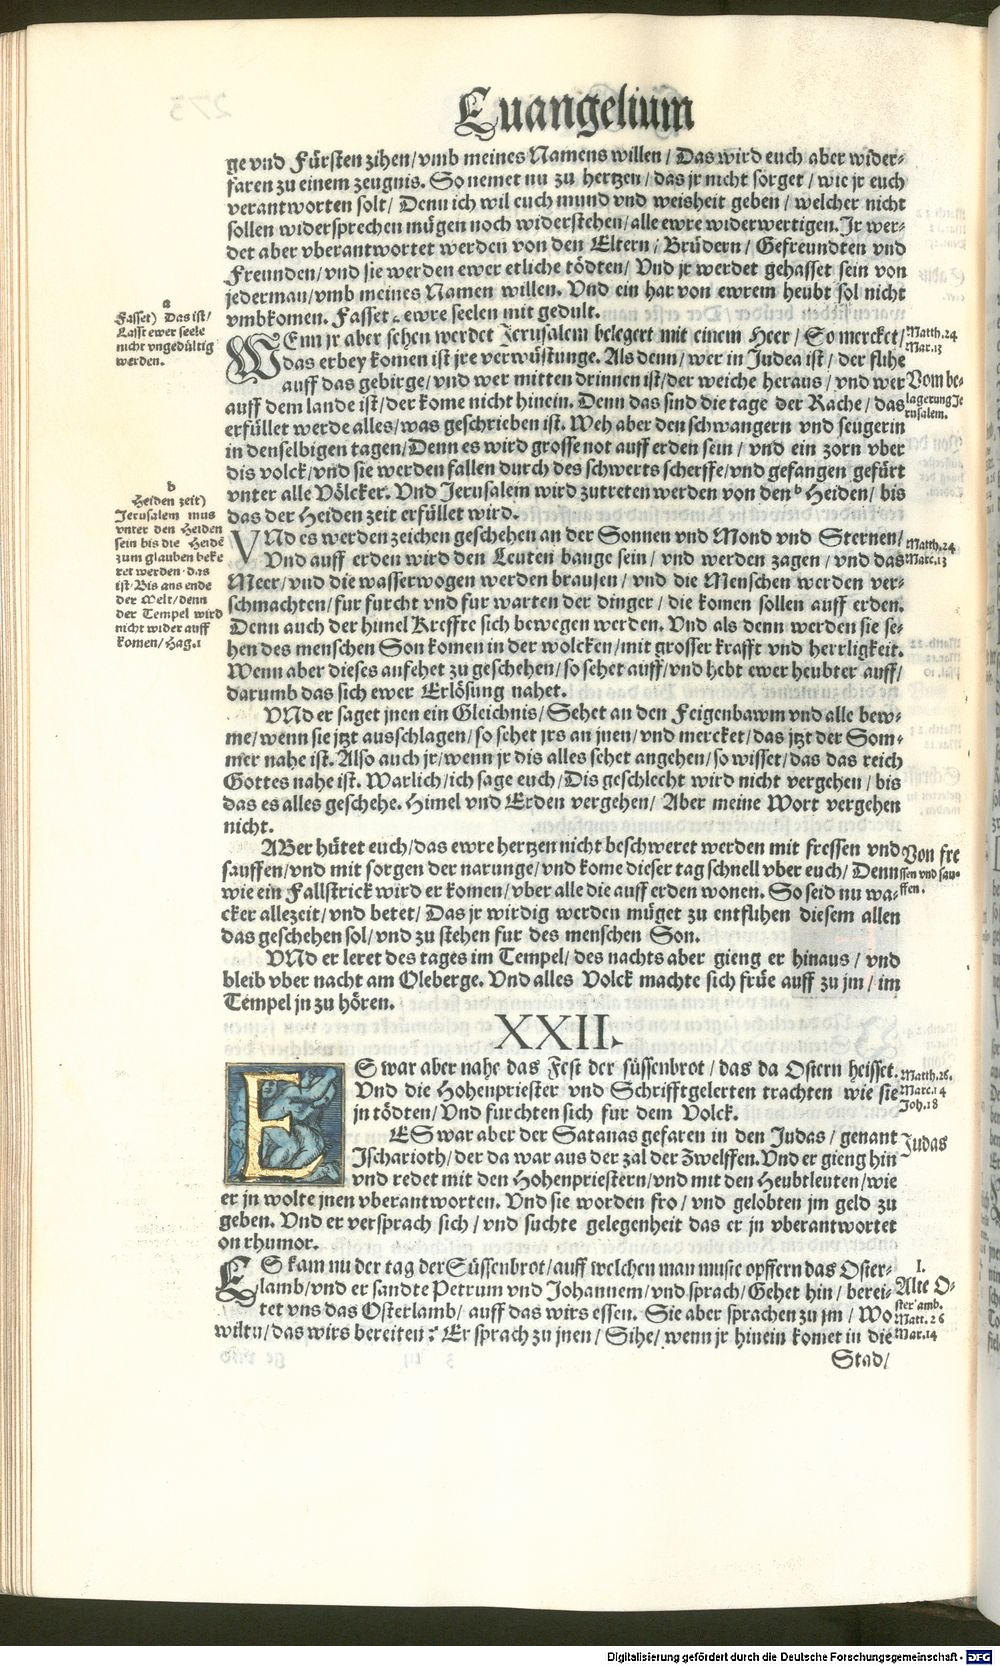 Euangelium
ge vnd Fürsten zihen/vmb meines Namens willen/ Das wird euch aber wider-
faren zu einem zeugnis. So nemet nu zu hertzen/das jr nicht sorget/wie jr euch
verantworten solt/ Denn ich wil euch mund vnd weisheit geben/ welcher nicht
sollen widersprechen mügen noch widerstehen/alle ewre widerwertigen. Jr wer-
det aber vberantwortet werden von den Eltern/ Brüdern/ Gefreundten vnd
Freunden/vnd sie werden ewer etliche tödten/ Vnd jr werdet gehasset sein von
jederman/vmb meines Namen willen. Vnd ein har von ewrem heubt sol nicht
vmbkomen. Fasset a ewre seelen mit gedult.
a
Fasset) Das ist/
Lasst ewer seele
nicht vngedültig
werden.
WEnn jr aber sehen werdet Jerusalem belegert mit einem Heer/ So mercket/
das erbey komen ist jre verwüstunge. Als denn/ wer in Judea ist/ der flihe
auff das gebirge/vnd wer mitten drinnen ist/der weiche heraus/ vnd wer
auff dem lande ist/der kome nicht hinein. Denn das sind die tage der Rache/das
erfüllet werde alles/was geschrieben ist. Weh aber den schwangern vnd seugerin
in denselbigen tagen/Denn es wird grosse not auff erden sein/ vnd ein zorn vber
dis volck/vnd sie werden fallen durch des schwerts scherffe/vnd gefangen gefürt
vnter alle Völcker. Vnd Jerusalem wird zutreten werden von den b Heiden/ bis
das der Heiden zeit erfüllet wird.
Matth.24
Mar.13
Vom be-
lagerung Je
rusalem.
b
Heiden zeit)
Jerusalem mus
vnter den Heiden
sein bis die Heidē
zum glauben beke
ret werden. das
ist/Bis ans ende
der Welt/denn
der Tempel wird
nicht wider auff
komen/Hag.1
VNd es werden zeichen geschehen an der Sonnen vnd Mond vnd Sternen/
Vnd auff erden wird den Leuten bange sein/ vnd werden zagen/ vnd das
Meer/vnd die wasserwogen werden brausen/ vnd die Menschen werden ver-
schmachten/fur furcht vnd fur warten der dinger/ die komen sollen auff erden.
Denn auch der himel Kreffte sich bewegen werden. Vnd als denn werden sie se-
hen des menschen Son komen in der wolcken/mit grosser krafft vnd herrligkeit.
Wenn aber dieses anfehet zu geschehen/so sehet auff/vnd hebt ewer heubter auff/
darumb das sich ewer Erlösung nahet.
Matth.24
Marc.13
VNd er saget jnen ein Gleichnis/Sehet an den Feigenbawm vnd alle bew-
me/wenn sie jtzt ausschlagen/so sehet jrs an jnen/vnd mercket/das jtzt der Som-
mer nahe ist. Also auch jr/wenn jr dis alles sehet angehen/so wisset/das das reich
Gottes nahe ist. Warlich/ich sage euch/Dis geschlecht wird nicht vergehen/ bis
das es alles geschehe. Himel vnd Erden vergehen/ Aber meine Wort vergehen
nicht.
ABer hütet euch/das ewre hertzen nicht beschweret werden mit fressen vnd
sauffen/vnd mit sorgen der narunge/vnd kome dieser tag schnell vber euch/ Denn
wie ein Fallstrick wird er komen/vber alle die auff erden wonen. So seid nu wa-
cker allezeit/vnd betet/Das jr wirdig werden müget zu entflihen diesem allen
das geschehen sol/vnd zu stehen fur des menschen Son.
Von fre
ssen vnd sau-
ffen.
VNd er leret des tages im Tempel/des nachts aber gieng er hinaus/ vnd
bleib vber nacht am Oleberge. Vnd alles Volck machte sich früe auff zu jm/im
Tempel jn zu hören.
XXII.
ES war aber nahe das Fest der süssenbrot/das da Ostern heisset.
Vnd die Hohenpriester vnd Schrifftgelerten trachten wie sie
jn tödten/Vnd furchten sich fur dem Volck.
Matth.26.
Marc.14
Joh.18
ES war aber der Satanas gefaren in den Judas/ genant
Jscharioth/der da war aus der zal der Zwelffen. Vnd er gieng hin
vnd redet mit den Hohenpriestern/vnd mit den Heubtleuten/wie
er jn wolte jnen vberantworten. Vnd sie worden fro/ vnd gelobten jm geld zu
geben. Vnd er versprach sich/ vnd suchte gelegenheit das er jn vberantwortet
on rhumor.
Judas
ES kam nu der tag der Süssenbrot/auff welchen man muste opffern das Oster-
lamb/vnd er sandte Petrum vnd Johannem/vnd sprach/Gehet hin/ berei-
tet vns das Osterlamb/ auff das wirs essen. Sie aber sprachen zu jm/ Wo
wiltu/das wirs bereiten? Er sprach zu jnen/ Sihe/wenn jr hinein komet in die
1.
Alte O-
sterlamb.
Matt.26
Mar.14
Stad/
Digitalisierung gefördert durch die Deutsche Forschungsgemeinschaft - DFG